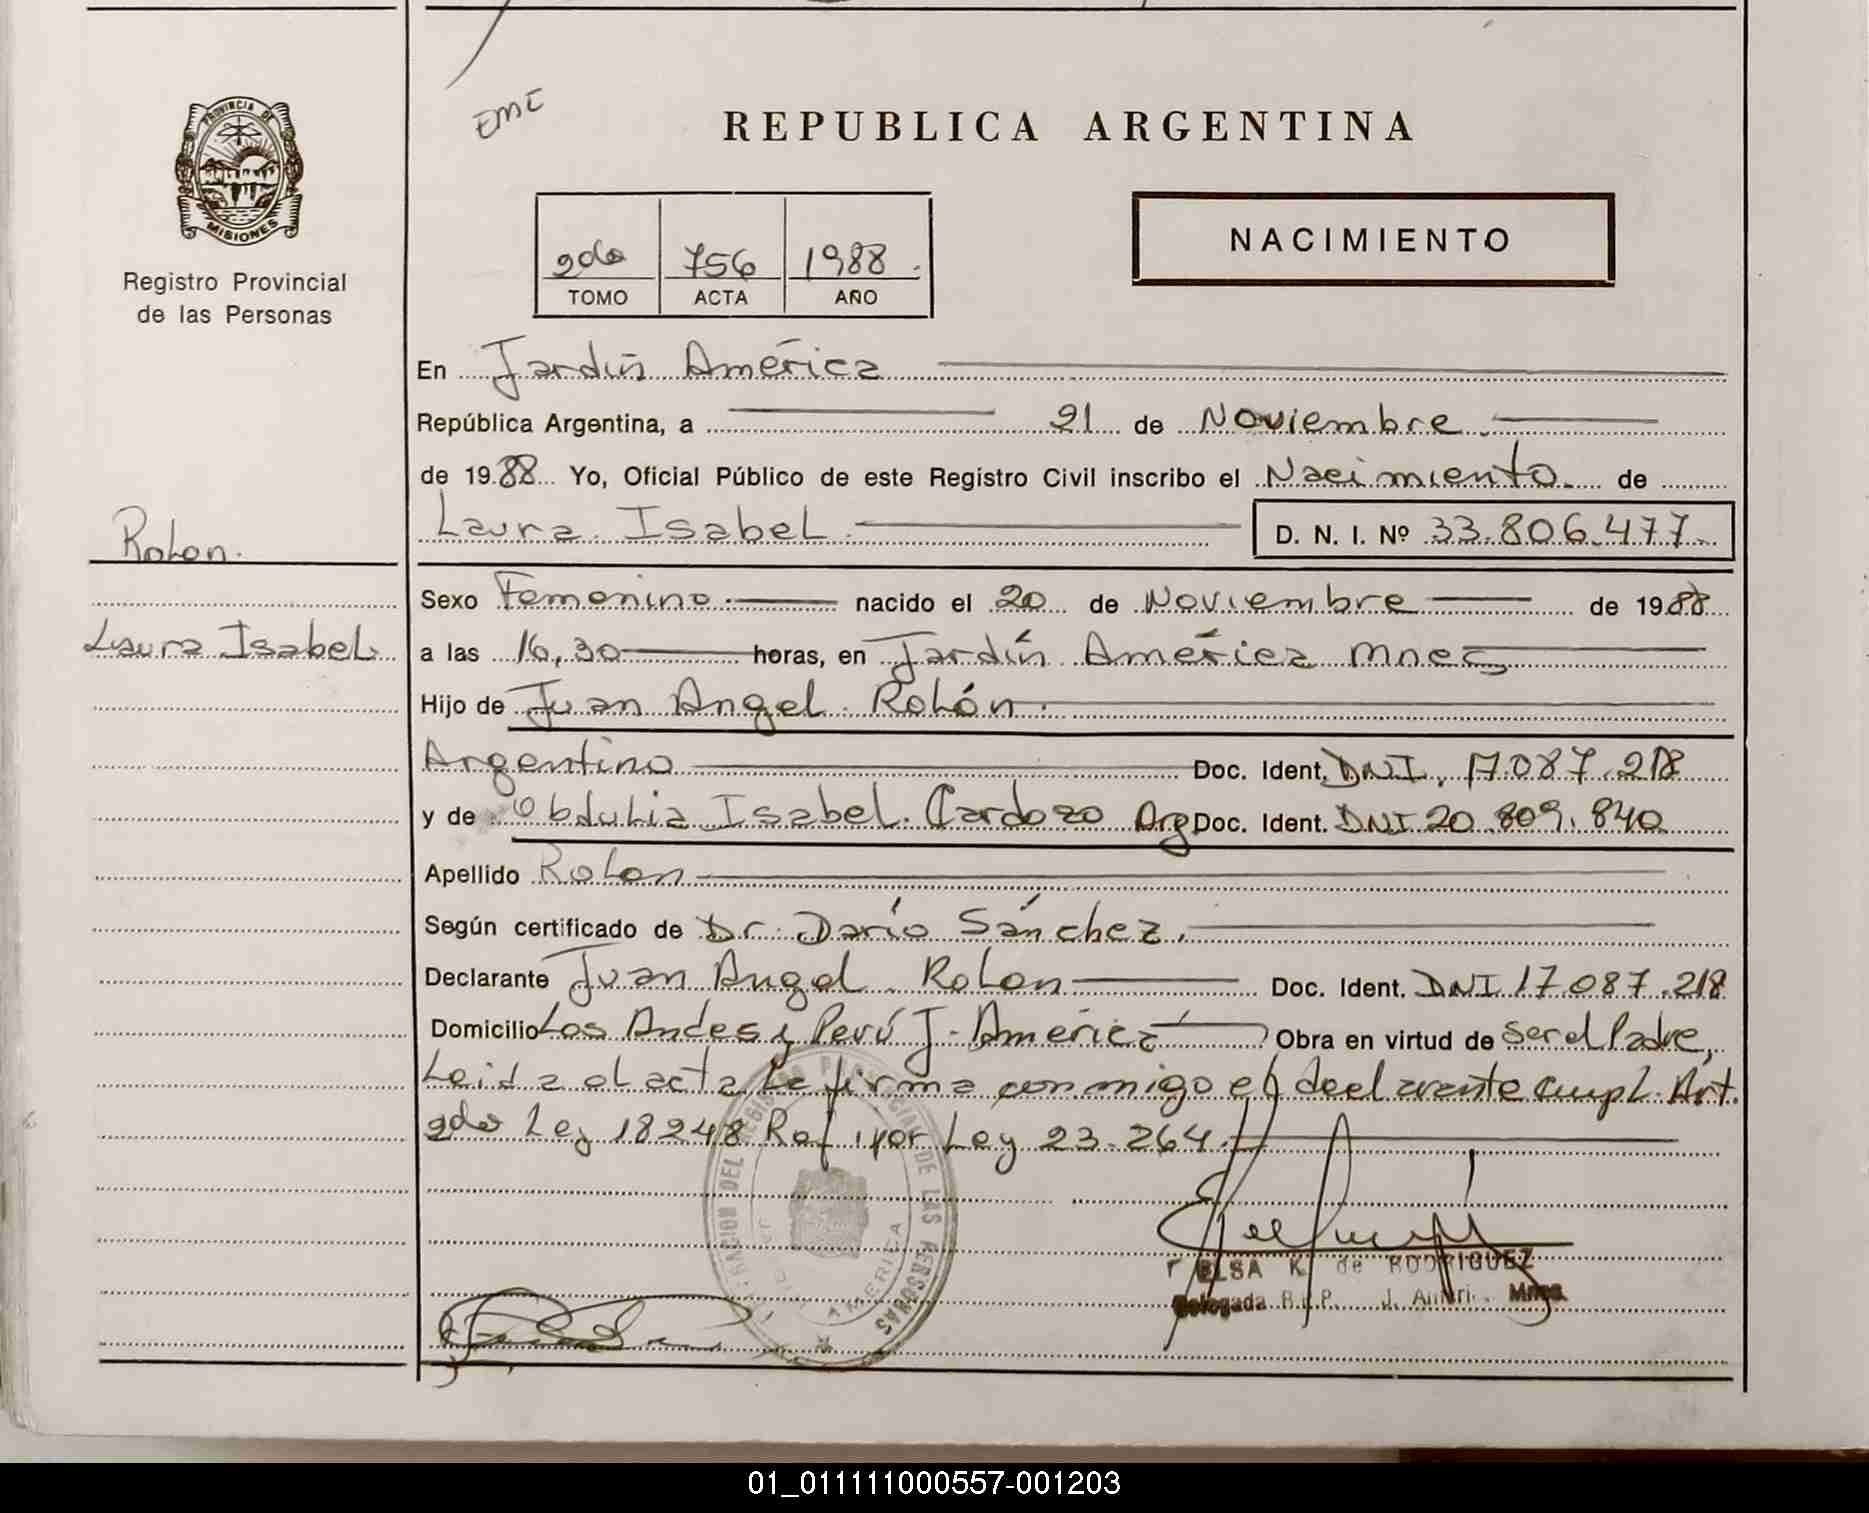 EME
REPUBLICA ARGENTINA
PROVINCIA DE
MISIONES
Registro Provincial
de las Personas
2do 756 1988.
TOMO ACTA AÑO
NACIMIENTO
En Jardín América
República Argentina, a 21 de Noviembre.
de 19.88 Yo, Oficial Público de este Registro Civil inscribo el Nacimiento. de
Laura Isabel. D. N. I. Nº 33.806.477.
Rolon.
Laura Isabel.
Sexo Femenino. nacido el 20 de Noviembre de 19.88
a las 16,30 horas, en Jardín América Mnes
Hijo de Juan Angel Rolón.
Argentino Doc. Ident. DNI. 17.087.218
y de Obdulia Isabel. Cardozo Arg Doc. Ident. DNI 20.809.840
Apellido Rolon
Según certificado de Dr. Darío Sánchez.
Declarante Juan Angel Rolon Doc. Ident. DNI 17.087.218
Domicilio Los Andes y Perú J. América Obra en virtud de Ser el Padre,
Leida el acta la firma conmigo el declarante cumpl. Art.
2do Ley 18248 Ref. por Ley 23.264.
REGISTRO PROVINCIAL DE LAS PERSONAS
AMERICA
ELSA K. de RODRIGUEZ
Delegada R.P. J. Améri. Mnes
01_011111000557-001203